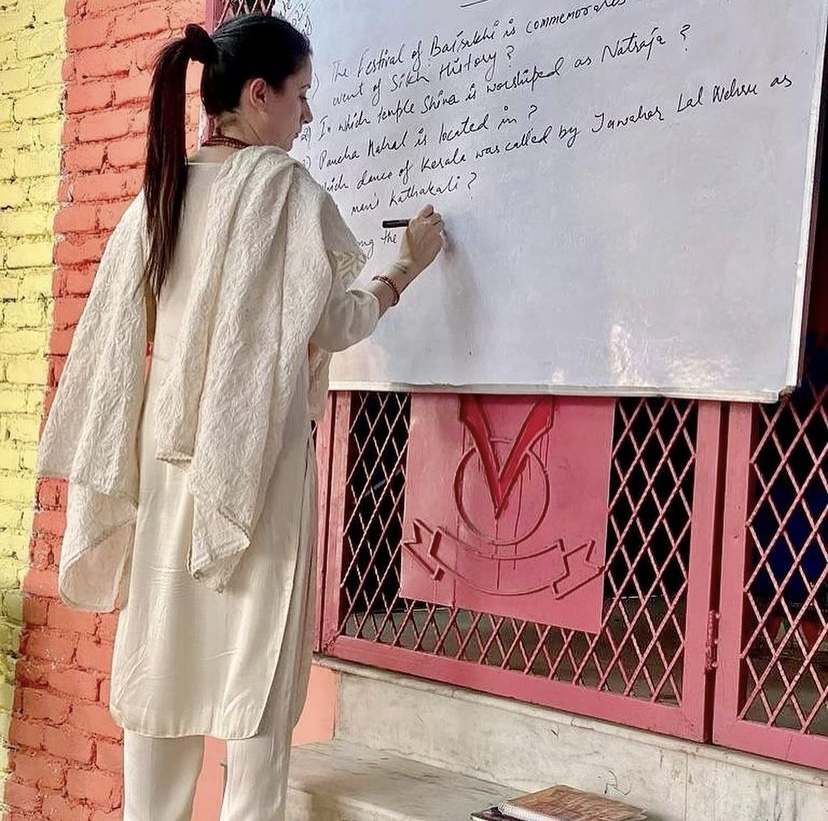 ) The Festival of Baisakhi is commemorates
event of Sikh History?
2) In which temple Shiva is worshiped as Natraja?
) Pancha Mahal is located in?
hich dance of Kerala was called by Jawahar Lal Nehru as
men's Kathakali?
ng the